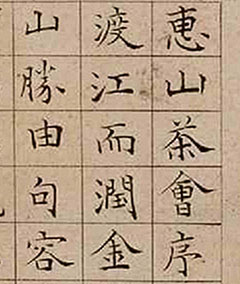 惠山茶會序
渡江而潤金
山勝由句容